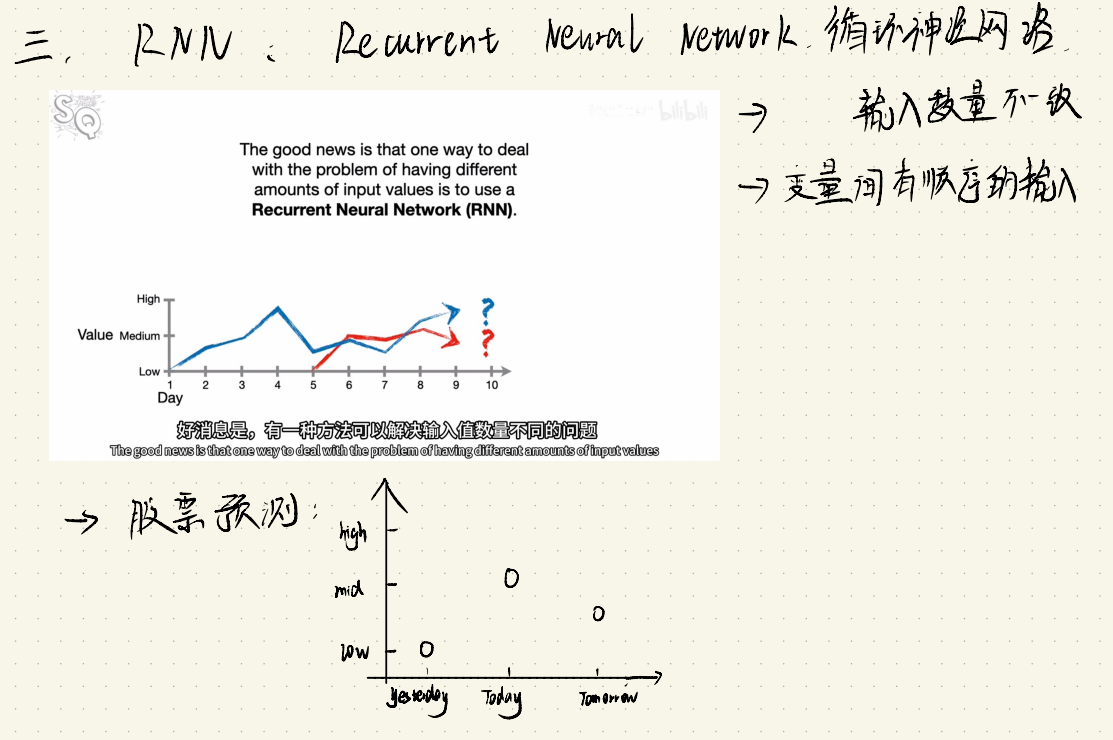 三. RNN: Recurrent Neural Network. 循环神经网络.
SQ
bilibili
→ 输入数量不一致
→ 变量间有顺序的输入
The good news is that one way to deal
with the problem of having different
amounts of input values is to use a
Recurrent Neural Network (RNN).
High
Value Medium
Low
? ?
1 2 3 4 5 6 7 8 9 10
Day
好消息是，有一种方法可以解决输入值数量不同的问题
The good news is that one way to deal with the problem of having different amounts of input values
→ 股票预测:
high
mid
low
Yesterday Today Tomorrow